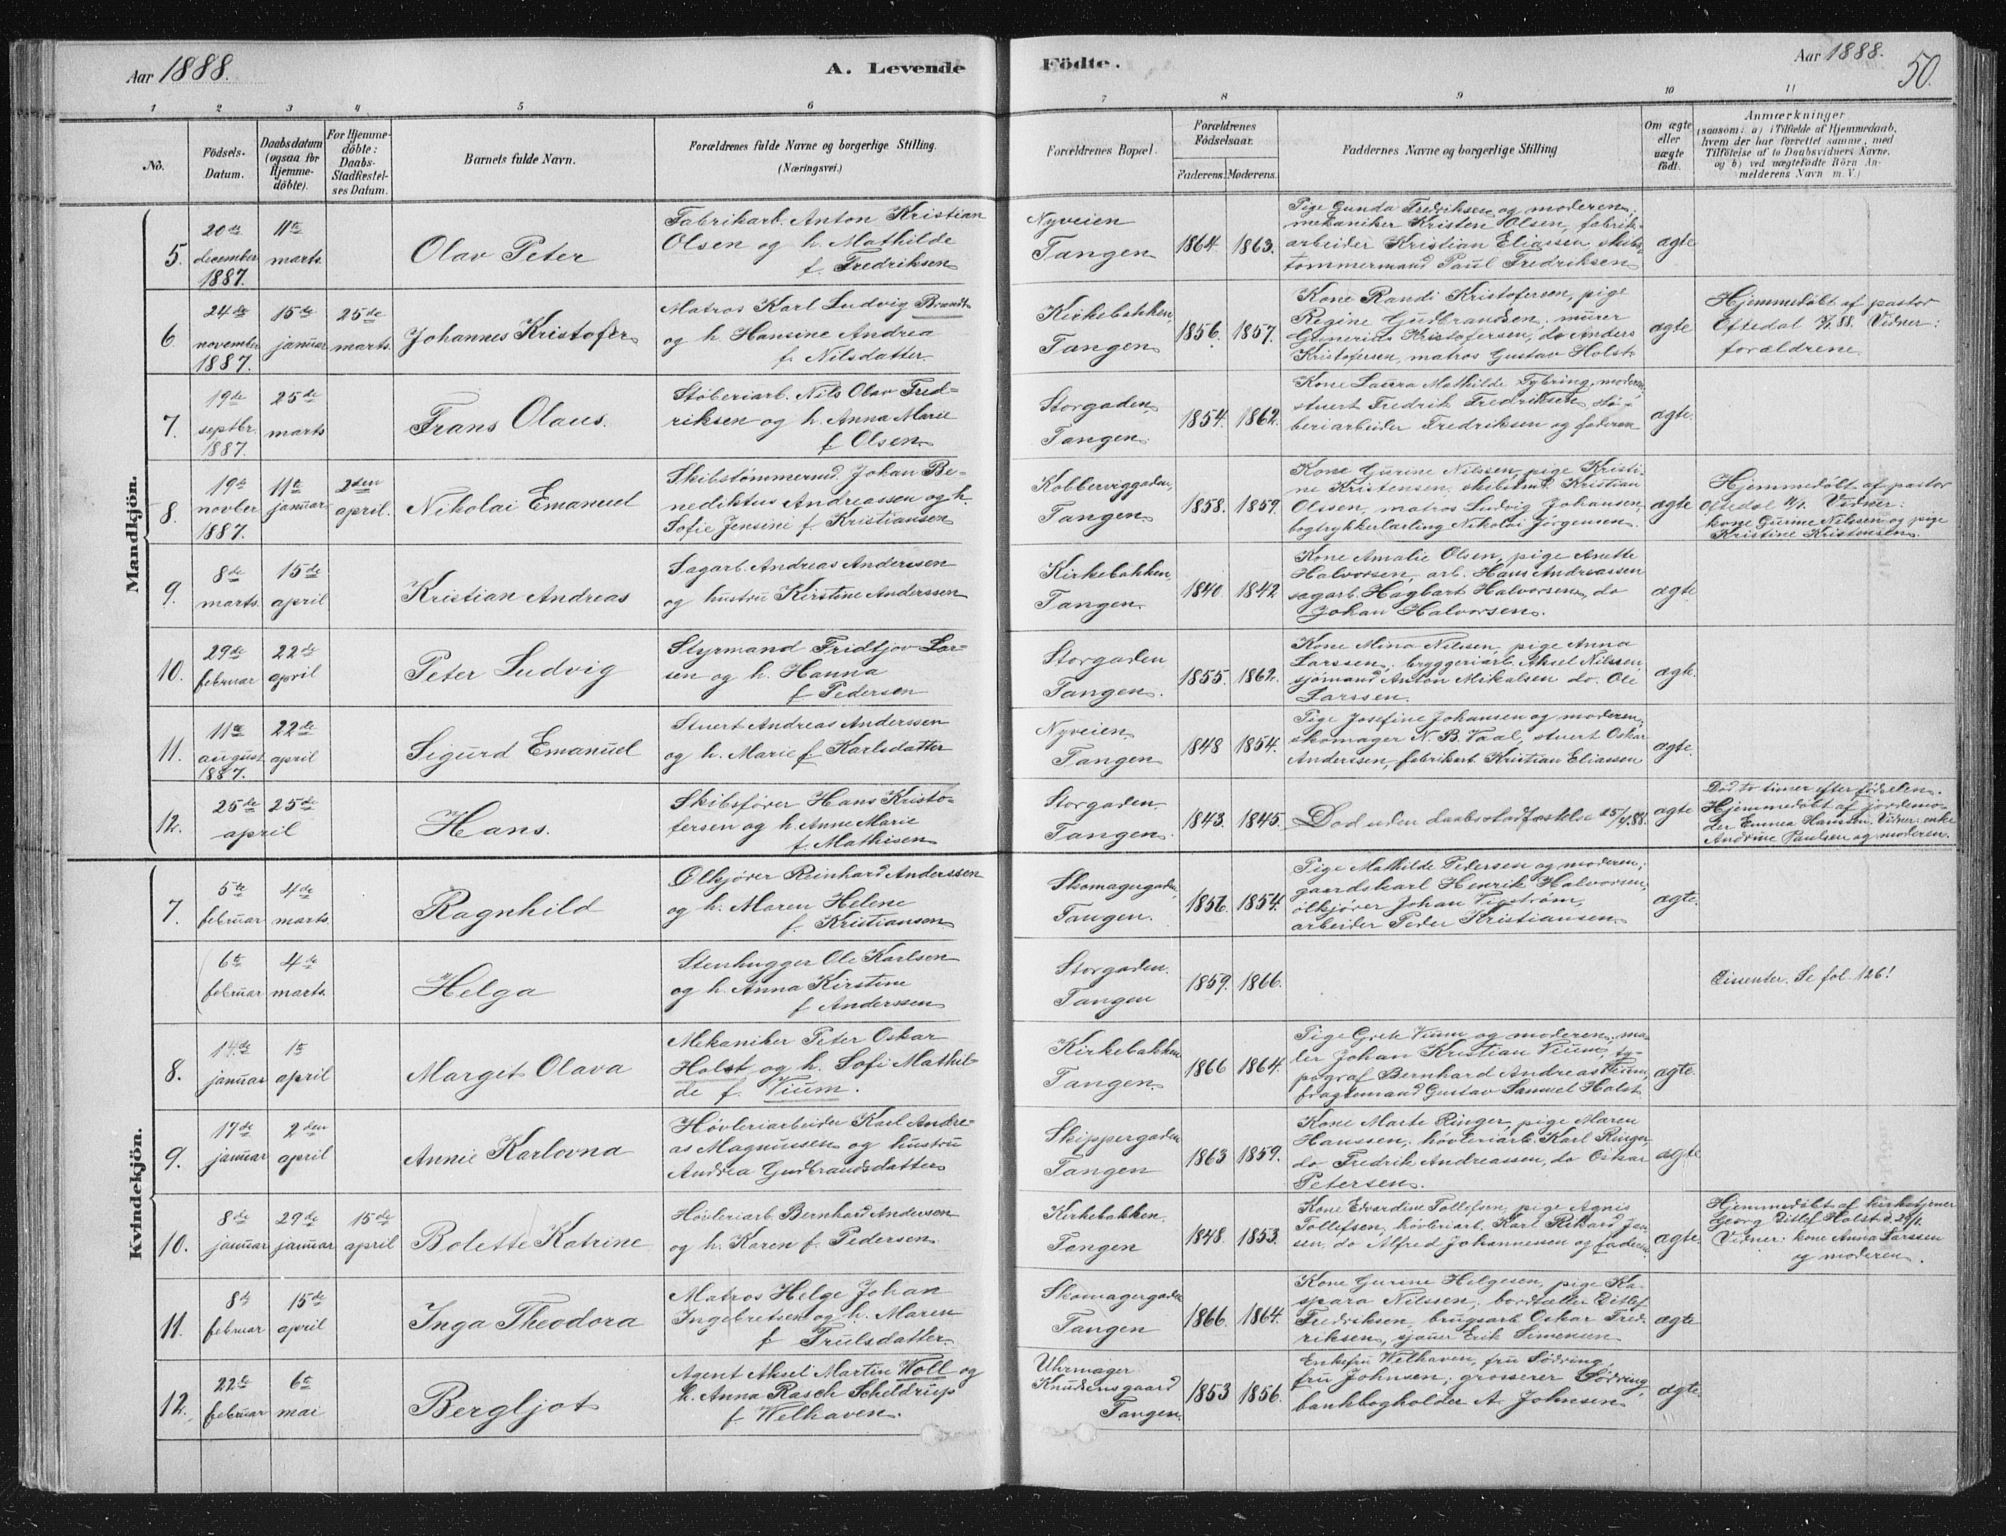 Aar 1888.
A. Levende
Födte.
Aar 1888.
50.
1 2 3 4 5 6 7 8 9 10 11
No.
Födsels-
Datum.
Daabsdatum
(ogsaa for
Hjemme-
döbte).
For Hjemme-
döbte:
Daabs-
Stadfæstel-
ses Datum.
Barnets fulde Navn.
Forældrenes fulde Navne og borgerlige Stilling.
(Næringsvei.)
Forældrenes Bopæl.
Forældrenes
Födselsaar.
Faderens. Moderens.
Faddernes Navne og borgerlige Stilling
Om ægte
eller
uægte
födt.
Anmærkninger
(saasom: a) i Tilfælde af Hjemmedaab,
hvem der har forrettet samme, med
Tilföielse af to Daabsvidners Navne,
og b) ved uægtefödte Börn An-
melderens Navn m. V.)
Mandkjön.
5.
20de
december
1887.
11te
marts
Olav Peter
Fabrikarb. Anton Kristian
Olsen og h. Mathilde
f. Fredriksen
Nyveien
Tangen
1864 1863.
Pige Gunda Fredriksen og moderen;
mekaniker Kristen Olsen, fabrik-
arbeider Kristian Eliassen, skibs-
tømmermand Paul Fredriksen
ægte
6
24de
november
1887.
15de
januar
25de
marts.
Johannes Kristofer
Matros Karl Ludvig Brandt
og h. Hansine Andrea
f. Nilsdatter.
Kirkebakken,
Tangen
1856. 1857.
Kone Randi Kristofersen, pige
Regine Gudbrandsen; murer
Gunerius Kristofersen, do Anders
Kristofersen, matros Gustav Holst
ægte
Hjemmedøbt af pastor
Oftedal 15/1 88. Vidner:
forældrene
7.
19de
septbr.
1887.
25de
marts
Frans Olaus.
Støberiarb. Nils Olav Fred-
riksen og h. Anna Marie
f. Olsen
Storgaden,
Tangen.
1854. 1862.
Kone Laura Mathilde Tybring, moderen;
stuert Fredrik Fredriksen, stø-
beriarbeider Fredriksen og faderen
ægte.
8.
19de
novber
1887.
11te
januar
2den
april.
Nikolai Emanuel
Skibstømmermd. Johan Be-
nediktus Andreassen og h.
Sofie Jensine f. Kristiansen
Kobberviggaden,
Tangen
1858. 1859.
Kone Gurine Nilssen, pige Kristi-
ne Kristensen, skibstmd. Kristian
Olssen, matros Ludvig Johansen,
bogtrykkerlærling Nikolai Jørgensen.
ægte
Hjemmedøbt af pastor
Oftedal 11/1. Vidner:
kone Gurine Nilssen og pige
Kristine Kristensen.
9.
8de
marts.
15de
april
Kristian Andreas
Sagarb. Andreas Anderssen
og hustru Kirstine Anderssen
Kirkebakken,
Tangen.
1840 1842
Kone Amalie Olsen, pige Anette
Halvorsen, arb. Hans Andreassen
sagarb. Hagbart Halvorsen, do
Johan Halvorsen.
ægte
10.
29de
februar
22de
april
Peter Ludvig
Styrmand Fridtjov Lar-
sen og h. Hanna
f. Pedersen
Storgaden
Tangen.
1855. 1862.
Kone Mina Nilsen, pige Anna
Larssen; bryggeriarb. Aksel Nilssen,
sjømand Anton Mikalsen do. Ole
Larssen.
ægte.
11.
11te
august
1887.
22de
april
Sigurd Emanuel
Stuert Andreas Anderssen
og h. Marie f. Karlsdatter
Nyveien
Tangen
1848 1854.
Pige Josefine Johansen og moderen;
skomager N. B. Vaal, stuert Oskar
Anderssen, fabrikarb. Kristian Eliassen
ægte.
12.
25de
april
25de
Hans.
Skibsfører Hans Kristo-
fersen og h. Anne Marie
f. Mathisen
Storgaden.
Tangen.
1843. 1845.
Død uden daabsstadfæstelse 25/4 88.
ægte
Død to timer efter fødselen.
Hjemmedøbt af jordemo-
der Emma Hanssen. Vidner: enke
Andrine Paulsen og moderen.
Kvindekjön.
7.
5te
februar
4de
marts.
Ragnhild
Ølkjører Reinhard Anderssen
og h. Maren Helene
f. Kristiansen
Skomagergaden,
Tangen.
1856. 1854.
Pige Mathilde Pedersen og moderen;
gaardskarl Henrik Halvorsen,
ølkjører Johan Vigstrøm,
arbeider Peder Kristiansen
ægte.
6te
februar
4de
marts.
Helga
Stenhugger Ole Karlsen
og h. Anna Kirstine
f. Anderssen
Storgaden.
Tangen
1859. 1866.
Dissenter. Se fol. 126!
8.
14de
januar
1ste
april
Marget Olava
Mekaniker Peter Oskar
Holst og h. Sofi Mathil-
de f. Vium.
Kirkebakken
Tangen
1866 1864.
Pige Grete Vium og moderen; ma-
ler Johan Kristian Vium, ty-
pograf Bernhard Andreas Vium,
fragtemand Gustav Samuel Holst
ægte.
9.
17de
januar
2den
april
Annie Karlovna
Høvleriarbeider Karl Andre-
as Magnussen og hustru
Andrea Gudbrandsdatter
Skippergaden
Tangen
1863 1859.
Kone Marte Ringer, pige Maren
Hanssen; høvleriarb. Karl Ringer,
do Fredrik Andreassen, do Oskar
Petersen.
ægte
10.
8de
januar
29de
januar
15de
april
Bolette Katrine
Høvleriarb. Bernhard Andersen
og h. Karen f. Pedersen
Kirkebakken.
Tangen
1848. 1853.
Kone Evardine Tollefsen, pige Agnis
Tollefsen, høvleriarb. Karl Rikard Jen-
sen, do Alfred Johannessen og faderen
ægte.
Hjemmedøbt af kirketjener
Georg Ditlef Holst d. 29/1.
Vidner: kone Anna Larssen
og moderen.
11.
8de
februar
15de
april
Inga Theodora
Matros Helge Johan
Ingebretsen og h. Maren
f. Trulsdatter
Skomagergaden
Tangen
1866. 1864.
Kone Gurine Helgesen, pige Ka-
spara Nilssen; bordtæller Ditlef
Fredriksen, brugsarb. Oskar Fred-
riksen, sjauer Erik Simensen
ægte
12.
22de
februar
6te
mai
Bergljot
Agent Aksel Martin Woll og
h. Anna Rasch Scheldrup
f. Welhaven.
Uhrmager
Knudsensgaard
Tangen.
1853 1856.
Enkefru Welhaven, fru Sødring,
fru Johnsen; grosserer Sødring,
bankbogholder A. Johnsen
ægte.